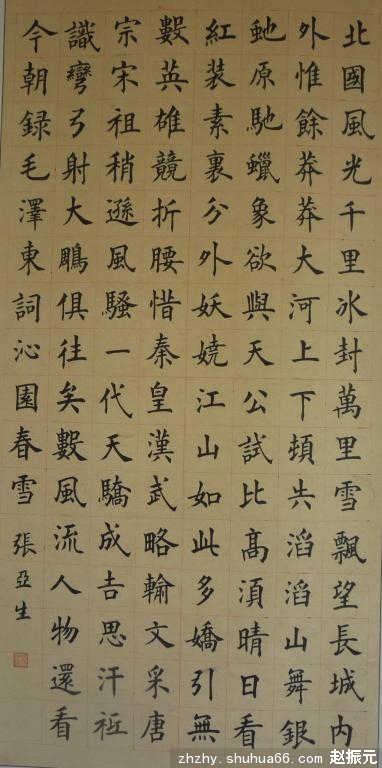 北國風光千里冰封萬里雪飄望長城内
外惟餘莽莽大河上下頓失滔滔山舞銀
虵原馳蠟象欲與天公試比高湏晴日看
紅装素裹分外妖嬈江山如此多嬌引無
數英雄競折腰惜秦皇漢武略輸文采唐
宗宋祖稍遜風騷一代天驕成吉思汗衹
識彎弓射大鵰俱往矣數風流人物還看
今朝録毛澤東詞沁園春雪張亞生
zhzhy.shuhua66.com 赵振元